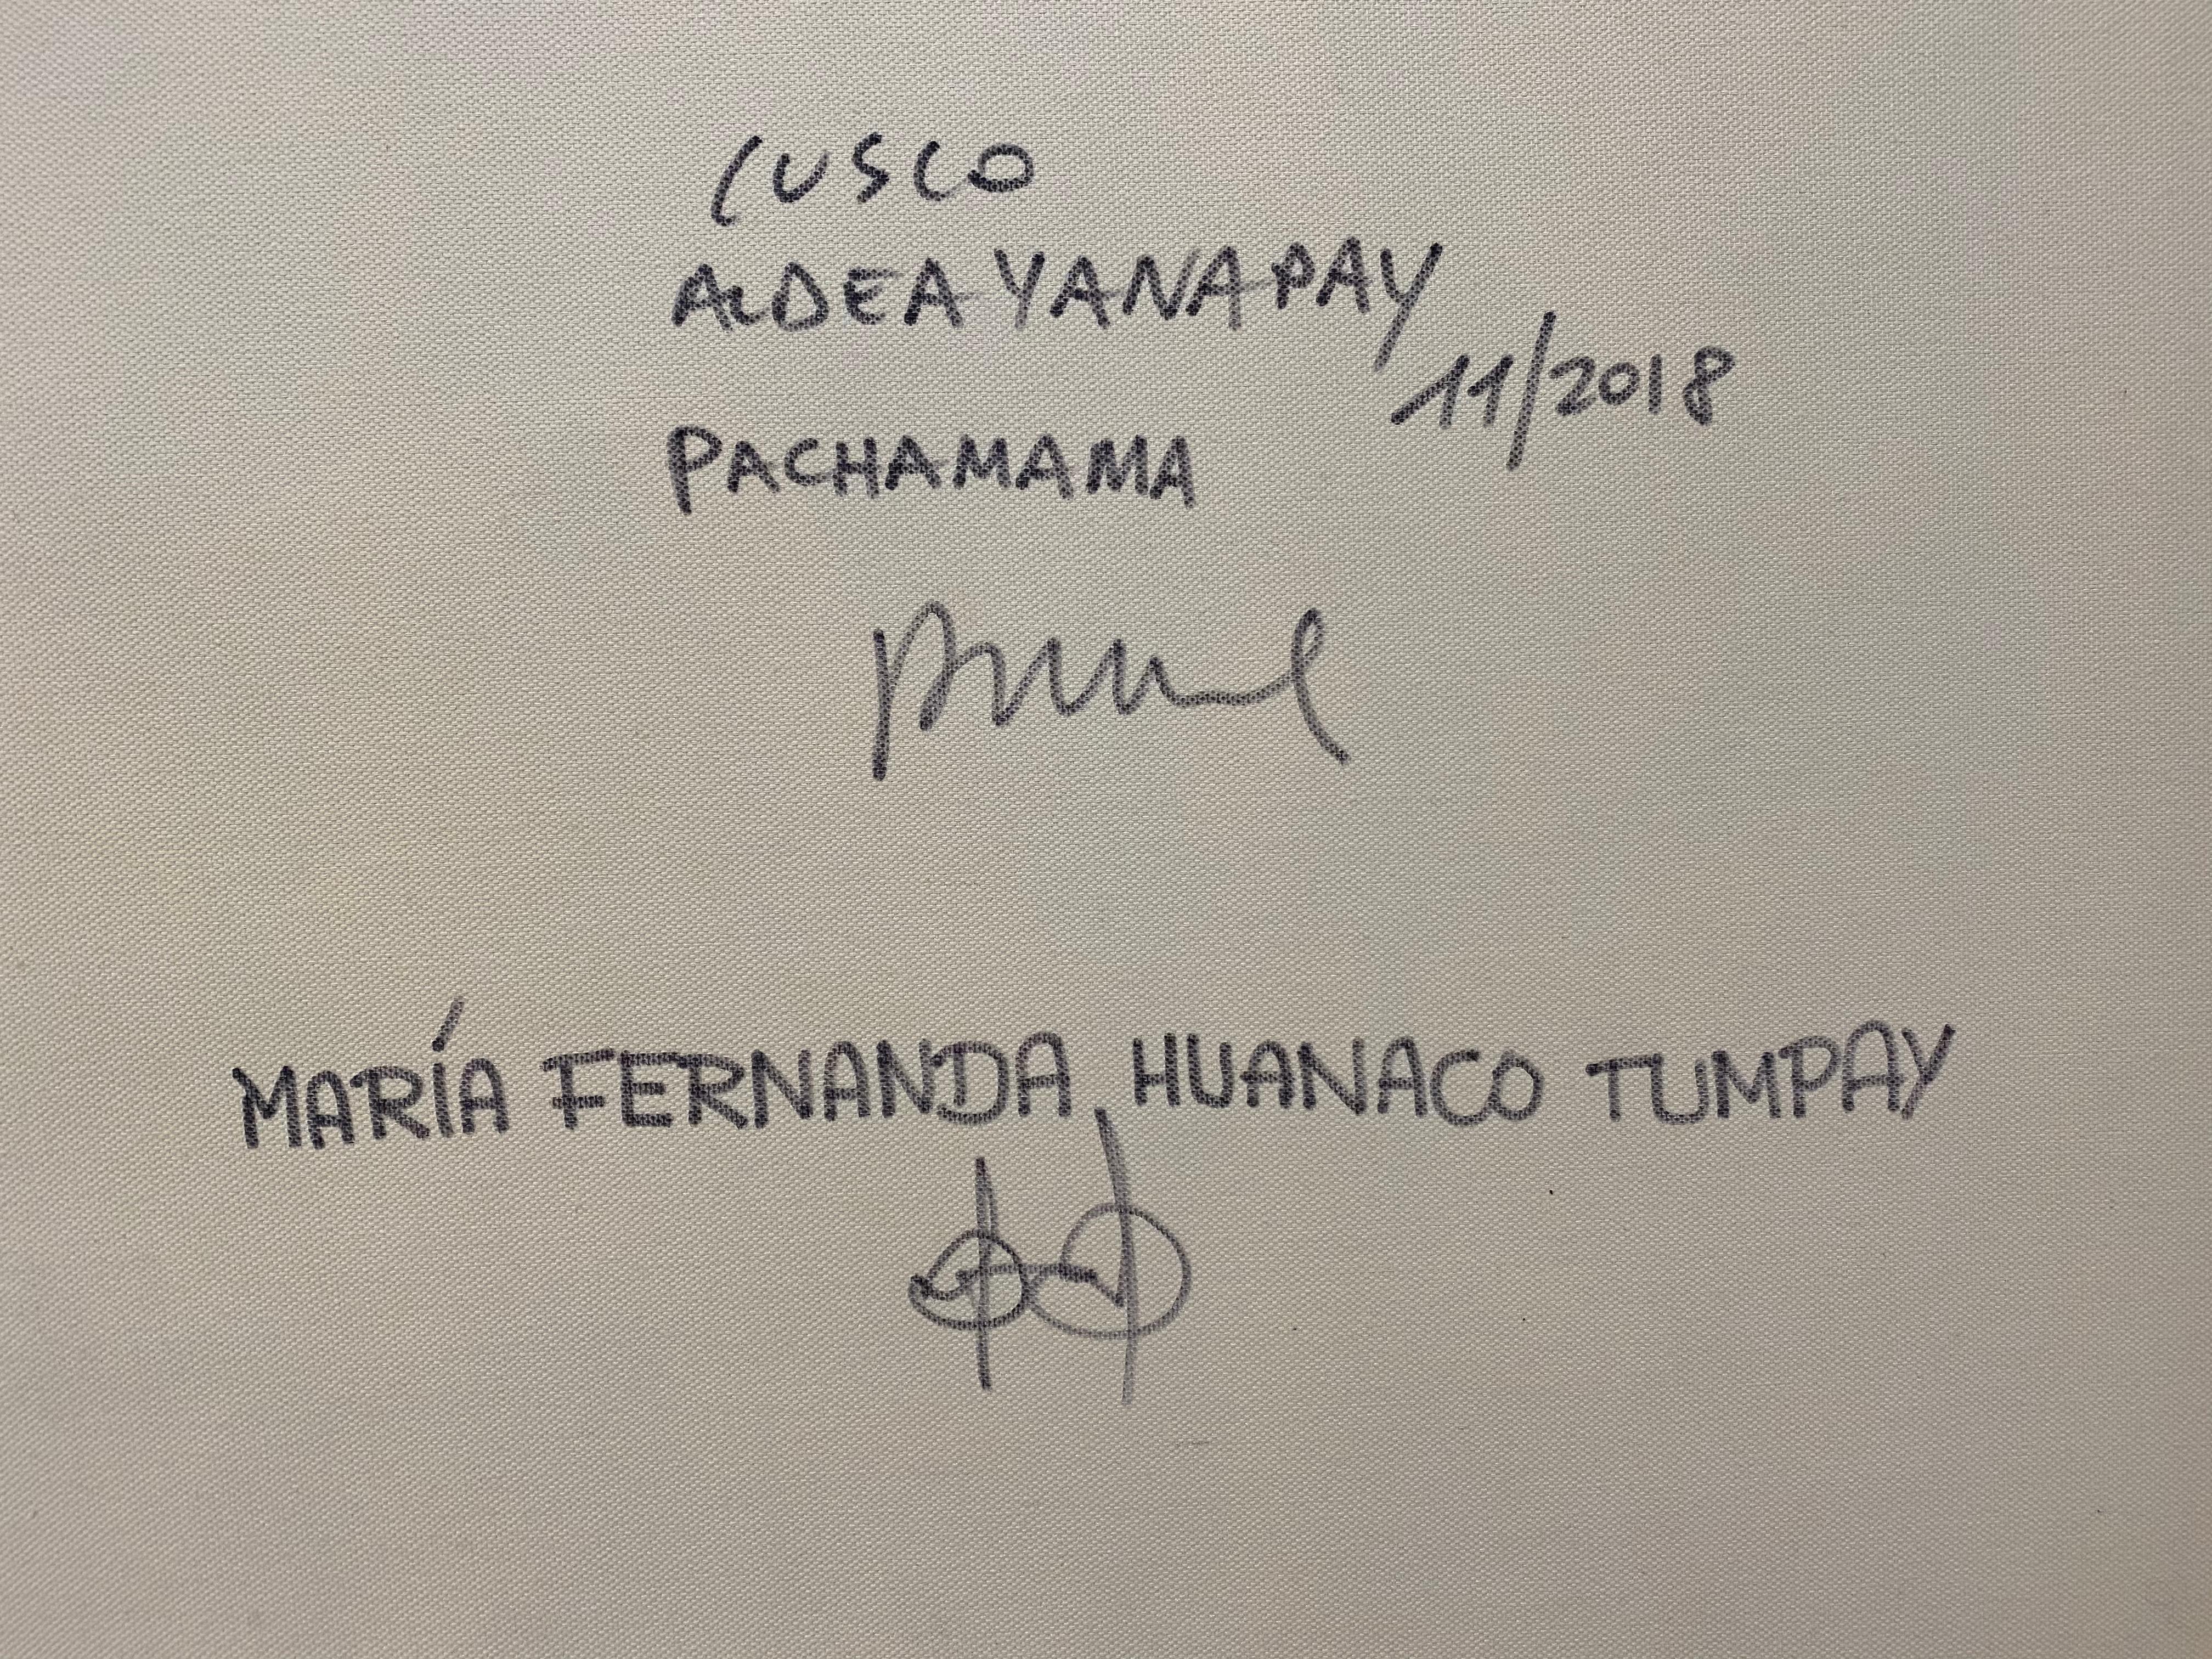 CUSCO
ALDEA YANAPAY
11/2018
PACHAMAMA
MARÍA FERNANDA HUANACO TUMPAY